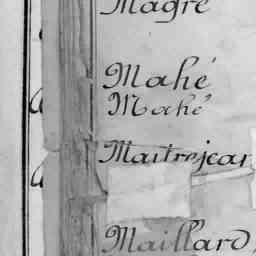 Magre
Mahé
Mahé
Maitrejean
Maillard